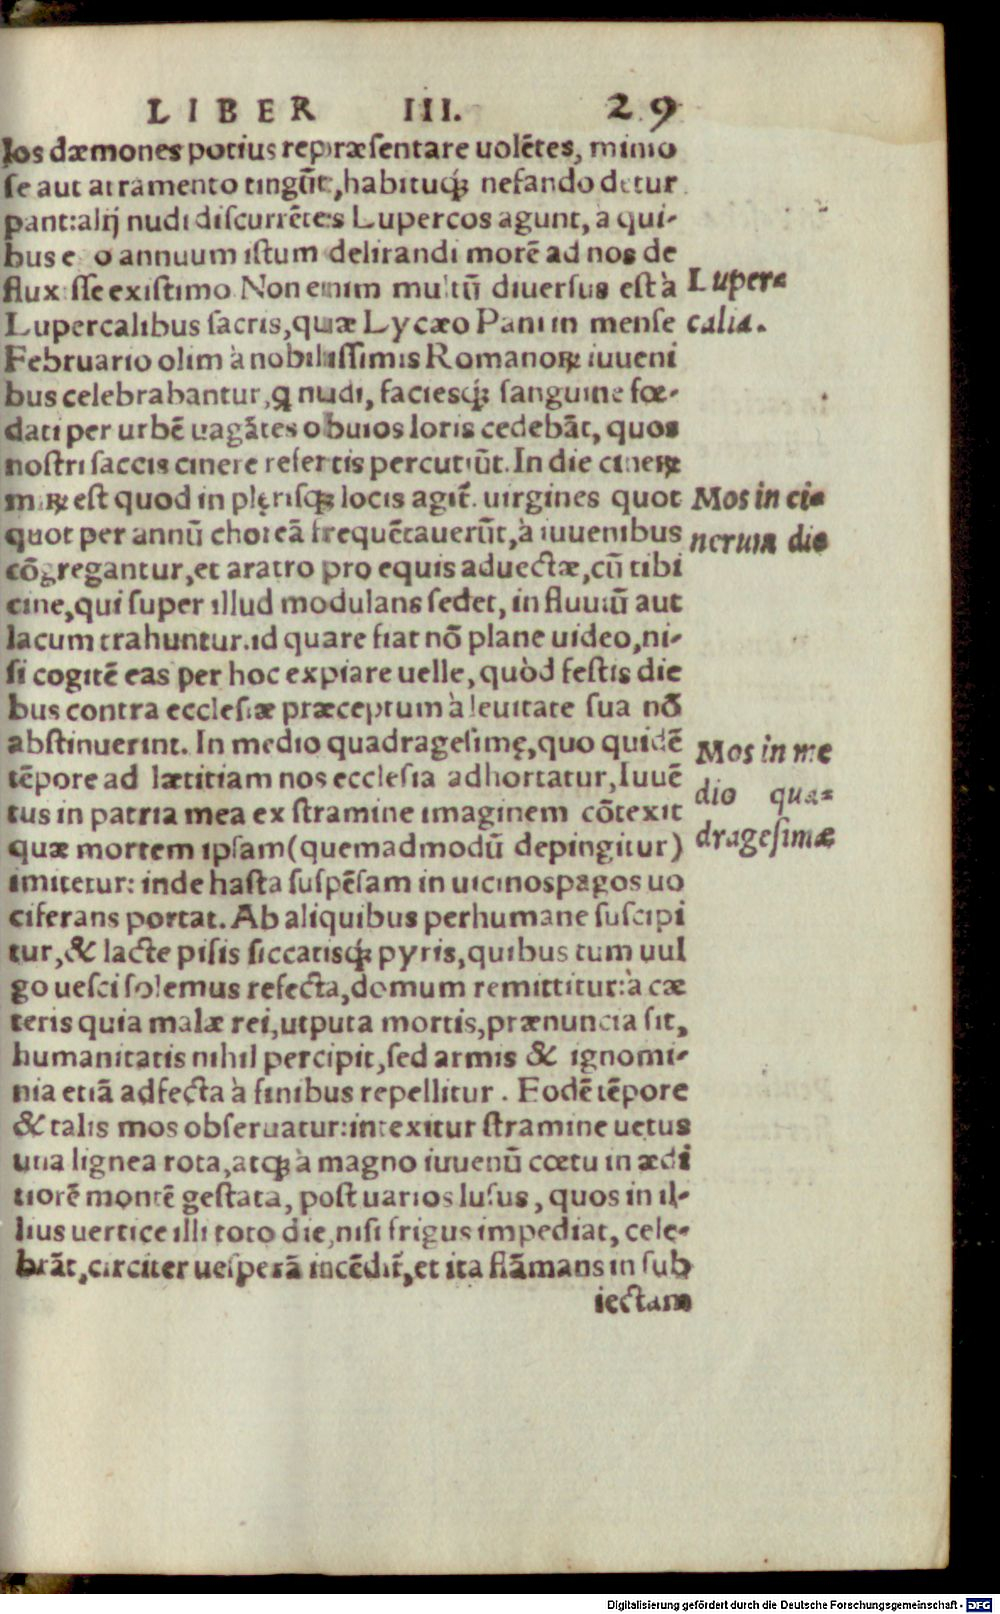 LIBER III. 29
los dæmones potius repræsentare uolẽtes, minio
se aut atramento tingũt, habituq́ꝫ nefando detur
pant: alij nudi discurrẽtes Lupercos agunt, à qui-
bus e o annuum istum delirandi morẽ ad nos de
flux sse existimo. Non enim multũ diuersus est à
Lupercalibus sacris, quæ Lycæo Pani in mense
Februario olim à nobilissimis Romanoꝝ iuueni
bus celebrabantur, ꝗ nudi, faciesq́ꝫ sanguine fœ-
dati per urbẽ uagãtes obuios loris cedebãt, quos
nostri saccis cinere refertis percutiũt. In die cineꝝ
miꝝ est quod in plęrisq́ꝫ locis agit̃. uirgines quot
quot per annũ choreã frequẽtauerũt, à iuuenibus
cõgregantur, et aratro pro equis aduectæ, cũ tibi
cine, qui super illud modulans sedet, in fluuiũ aut
lacum trahuntur. id quare fiat nõ plane uideo, ni-
si cogitẽ eas per hoc expiare uelle, quòd festis die
bus contra ecclesiæ præceptum à leuitate sua nõ
abstinuerint. In medio quadragesimę, quo quidẽ
tẽpore ad lætitiam nos ecclesia adhortatur, Iuuẽ
tus in patria mea ex stramine imaginem cõtexit
quæ mortem ipsam (quemadmodũ depingitur)
imitetur: inde hasta suspẽsam in uicinos pagos uo
ciferans portat. Ab aliquibus perhumane suscipi
tur, & lacte pisis siccatisq́ꝫ pyris, quibus tum uul
go uesci solemus refecta, domum remittitur: à cæ
teris quia malæ rei, utputa mortis, prænuncia sit,
humanitatis nihil percipit, sed armis & ignomi-
nia etiã adfecta à finibus repellitur. Eodẽ tẽpore
& talis mos obseruatur: intexitur stramine uetus
una lignea rota, atq́ꝫ à magno iuuenũ cœtu in ædi
tiorẽ montẽ gestata, post uarios lusus, quos in il-
lius uertice illi toto die, nisi frigus impediat, cele-
brãt, circiter uesperã incẽdit̃, et ita flãmans in sub
iectam
Luper=
calia.
Mos in ci=
nerum die
Mos in me
dio qua=
dragesimæ
Digitalisierung gefördert durch die Deutsche Forschungsgemeinschaft - DFG